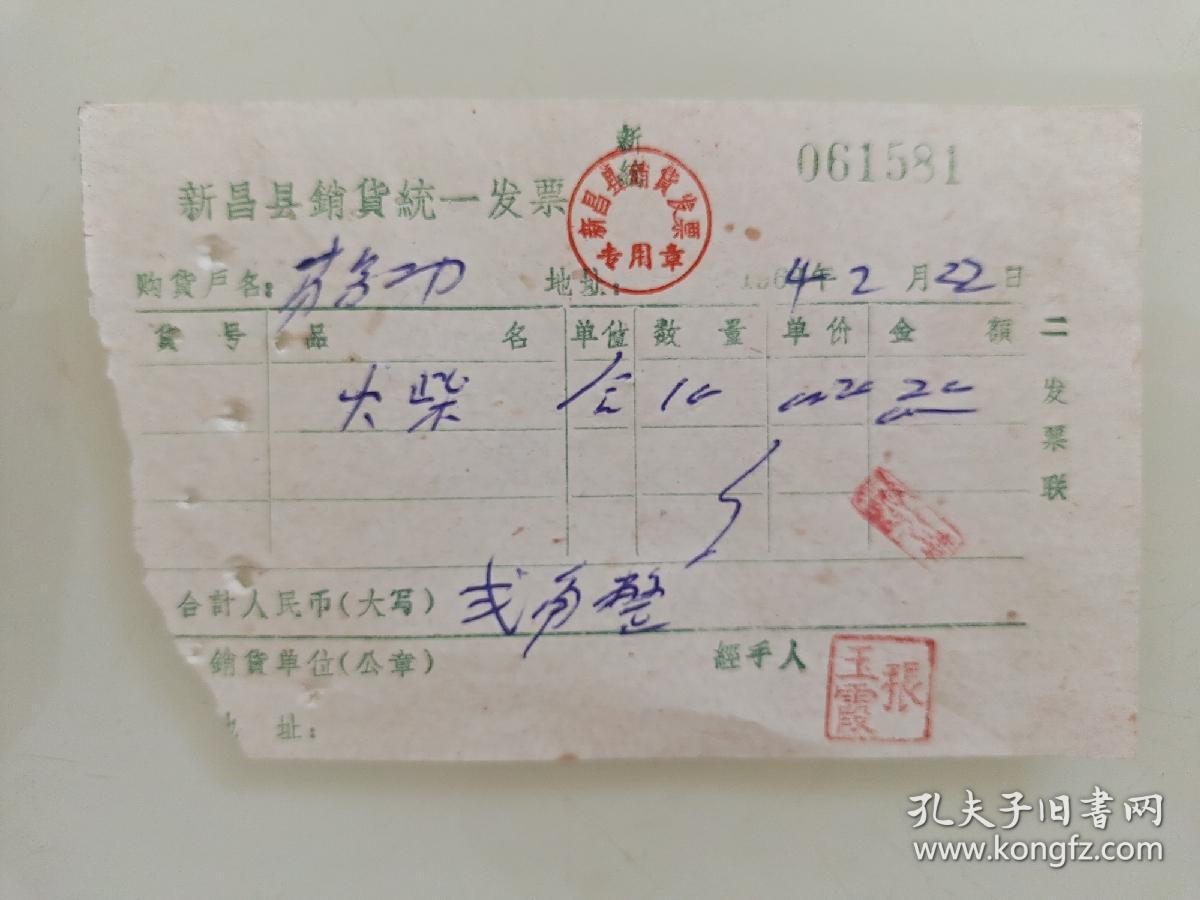 新
061581
新昌县銷貨統一发票
新昌县销货发票
专用章
购货戶名: 地址: 1964年2月22日
貨号 品名 单位 数量 单价 金額
火柴 合 10 0020 20
二发票联
合計人民币(大写) 弍角整
銷货单位(公章) 經手人 張玉霞
地址:
孔夫子旧书网
www.kongfz.com